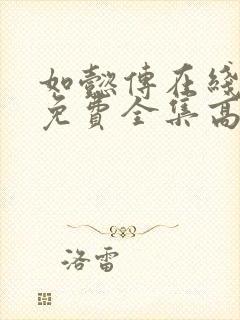 如懿傳在綫
免費全集高
洛雷